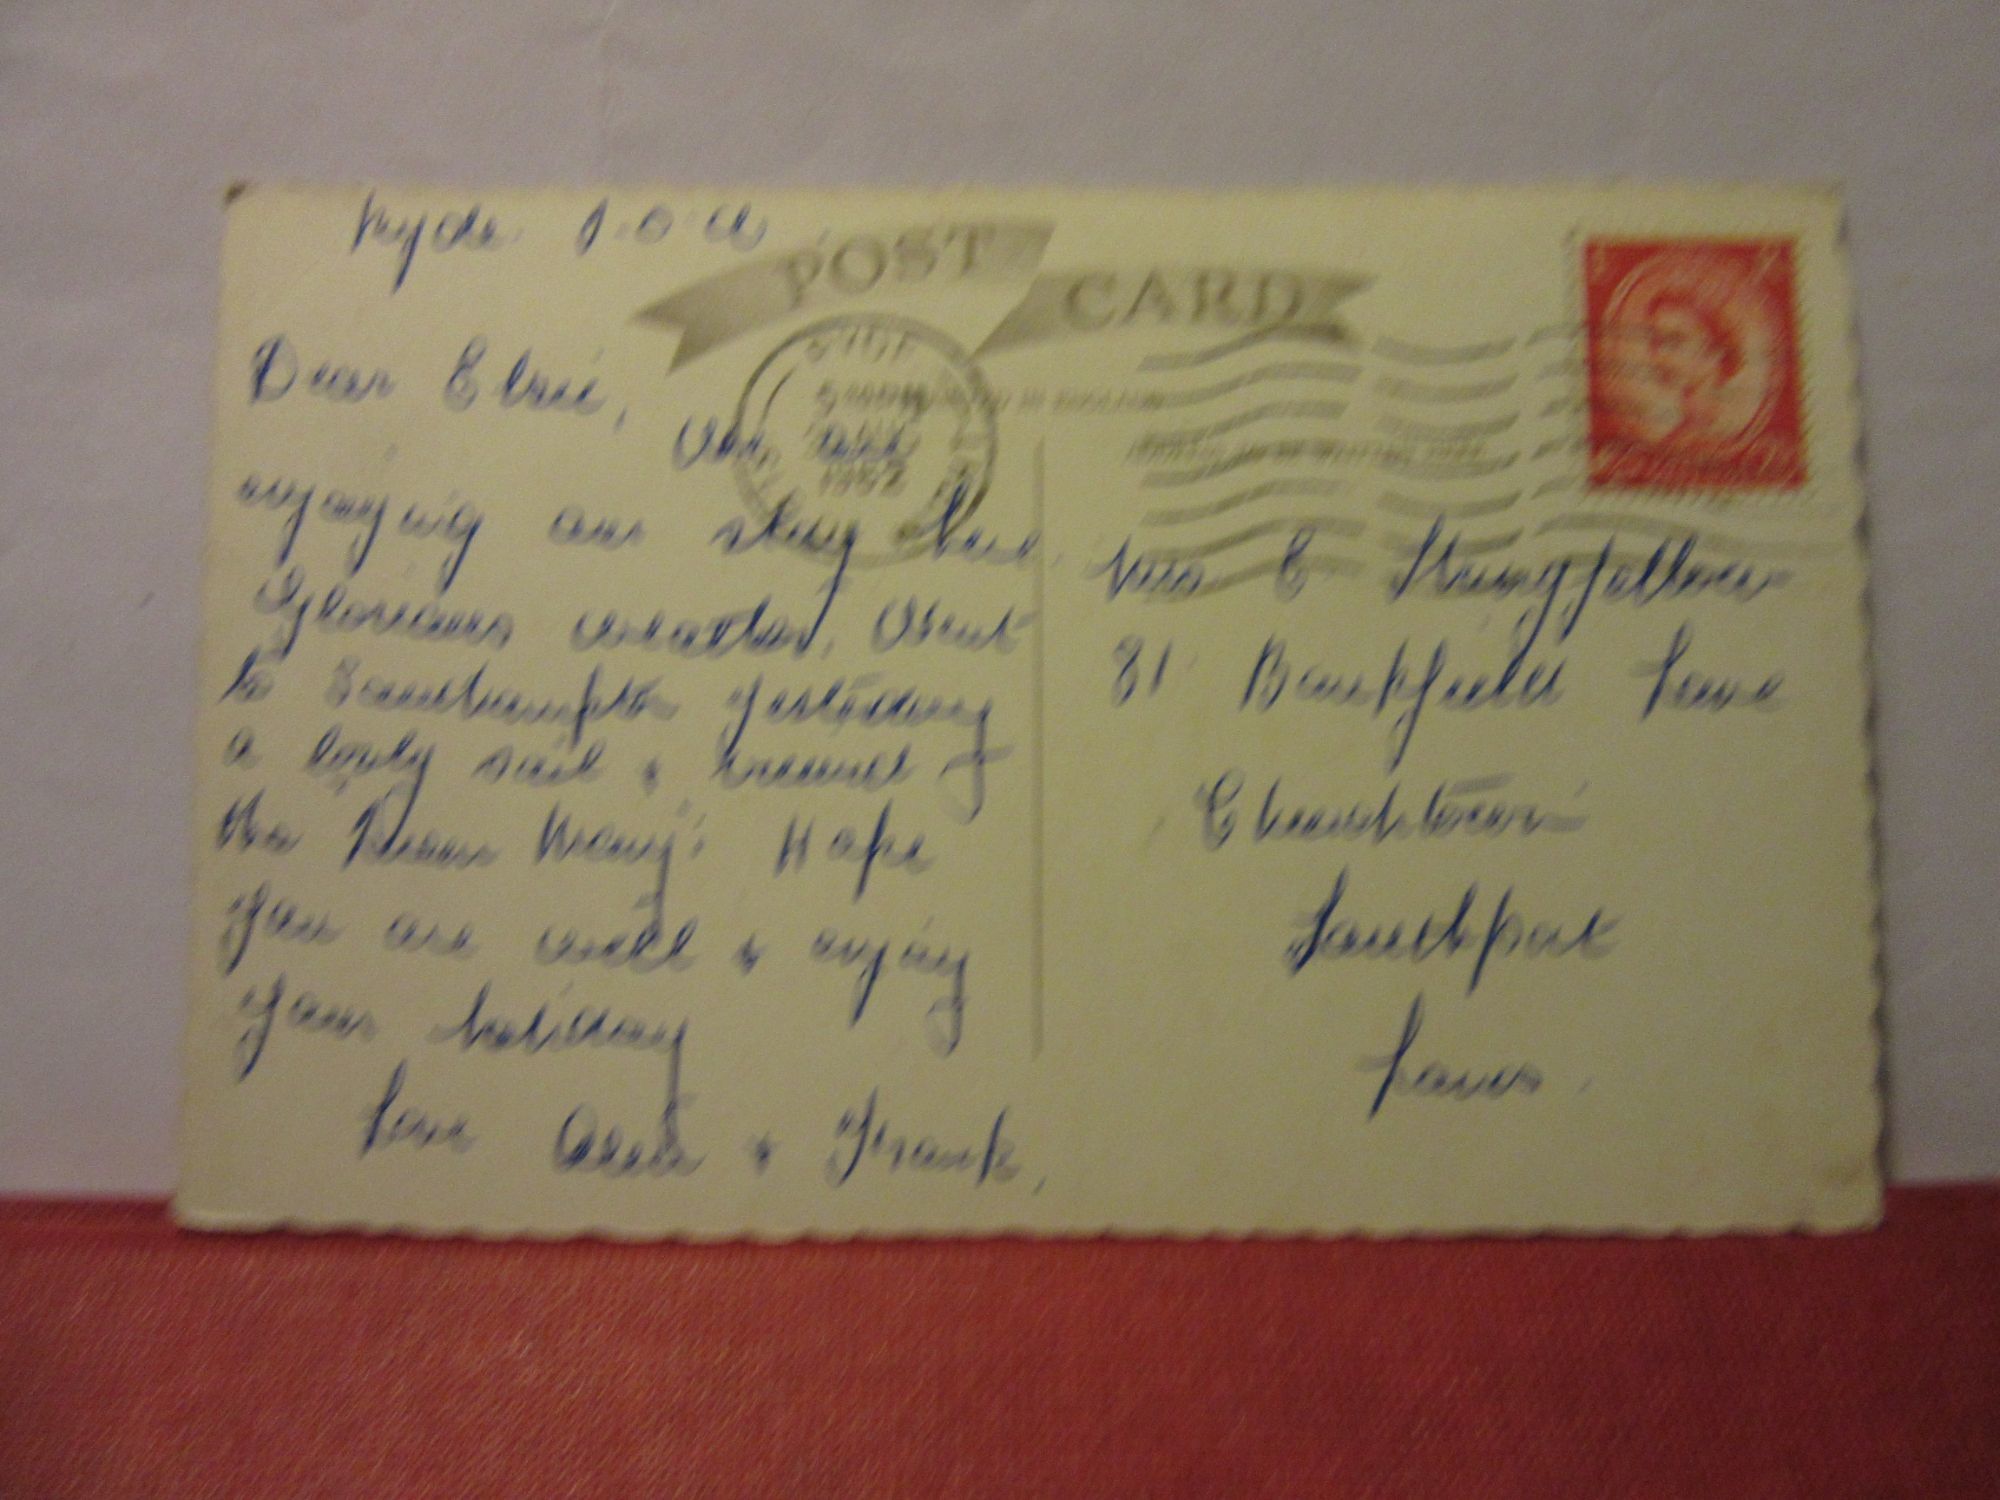 Ryde. I.O.W
POST CARD
RYDE
1962
Dear Elsie,
We are
enjoying our stay here.
Glorious weather. Went
to Southampton yesterday
a lovely sail & around
the Queen Mary. Hope
you are well & enjoy
your holiday
Love & Frank,
Mrs E. Stringfellow
81 Bankfield Lane
Churchtown
Southport
Lancs.